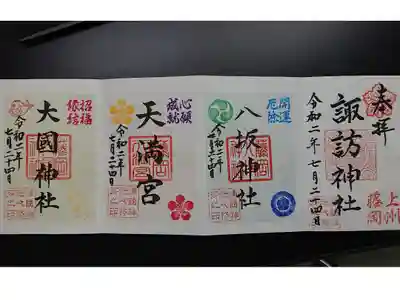 奉拝
上州
藤岡
諏訪神社
令和二年七月二十四日
開運
厄除
八坂神社
令和二年
七月二十四日
心願
成就
天満宮
令和二年
七月二十四日
招福
縁結
大國神社
令和二年
七月二十四日